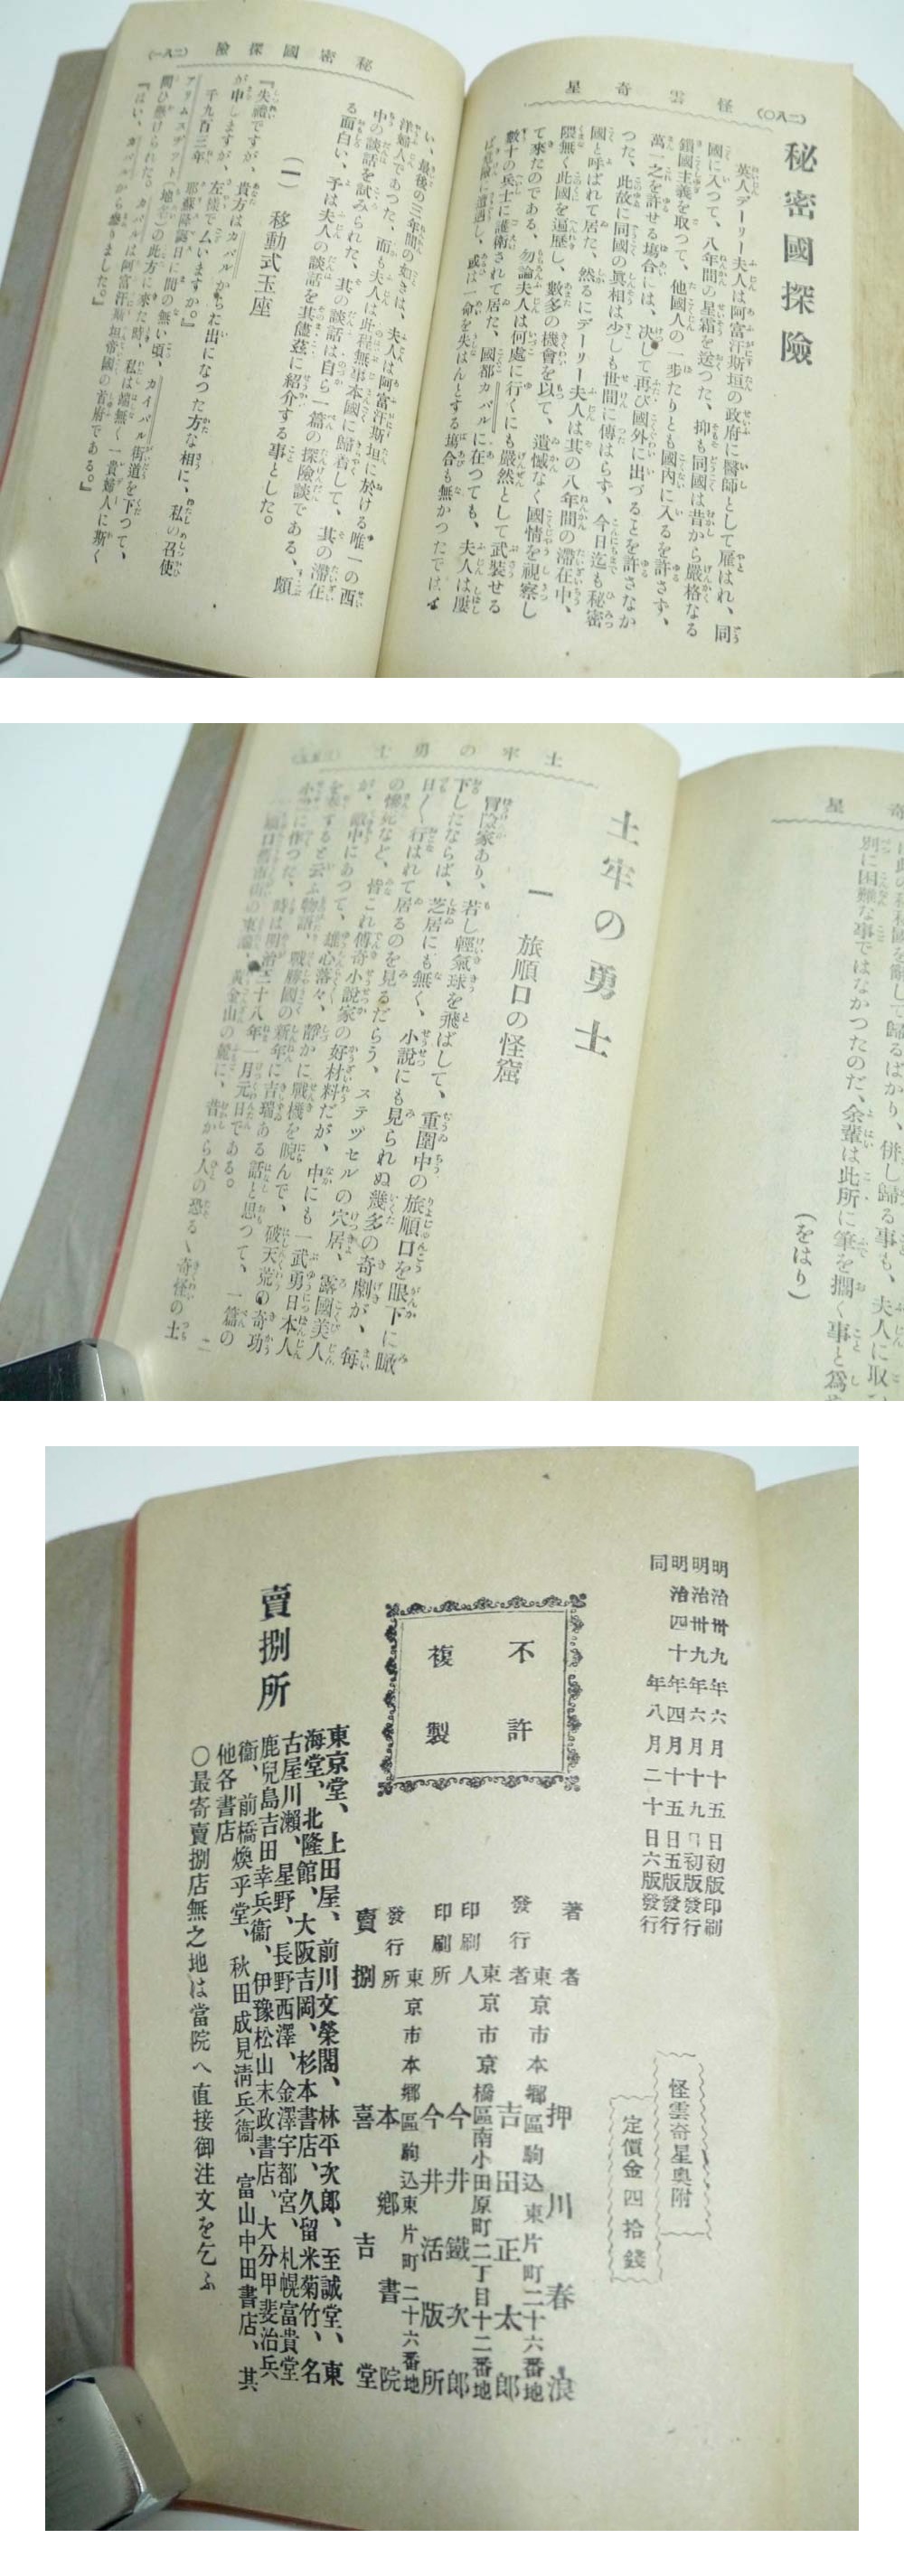 怪雲奇星
(二八〇)
秘密國探險
英人デーリー夫人は阿富汗斯垣の政府に醫師として雇はれ、同
國に入つて、八年間の星霜を送つた、抑も同國は昔から嚴格なる
鎖國主義を取つて、他國人の一歩たりとも國内に入るを許さず、
萬一之を許せる塲合には、决して再び國外に出づることを許さなか
つた、此故に同國の眞相は少しも世間に傳はらず、今日迄も秘密
國と呼ばれて居た、然るにデーリー夫人は其の八年間の滯在中、
隈無く此國を遍歴し、數多の機會を以て、遺憾なく國情を視察し
て來たのである、勿論夫人は何處に行くにも嚴然として武裝せる
數十の兵士に護衛されて居た、國都カバルに在つても、夫人は屢
ば危險に遭遇し、或は一命を失はんとする塲合も無かつたでは
秘密國探險
(二八一)
い、最後の三年間の如きは、夫人は阿富汗斯垣に於ける唯一の西
洋婦人であつた、而も夫人は此程無事本國に歸着して、其の滯在
中の談話を試みられた、其の談話は自ら一篇の探險談である、頗
る面白い、予は夫人の談話を其儘茲に紹介する事とした。
(一) 移動式玉座
『失禮ですが、貴方はカバルからお出になつた方な相に、私の召使
が申しますが、左樣でムいますか。』
千九百三年、耶蘇降誕日に間の無い頃、カイバル街道を下つて、
アリムスヂツト(地名)の此方に來た時、私は端無く一貴婦人に斯く
問ひ懸けられた。カバルは阿富汗斯垣帝國の首府である。』
『はい、カバルから參りました。』
奇星
別に困難な事ではなかつたのだ、余輩は此所に筆を擱く事と爲
(をはり)
土牢の勇士
土牢の勇士
一 旅順口の怪窟
冒險家あり、若し輕氣球を飛ばして、重圍中の旅順口を眼下に瞰
下したならば、芝居にも無く、小説にも見られぬ幾多の奇劇が、毎
日〱行はれて居るのを見るだらう、ステツセルの穴居、露國美人
の慘死など、皆これ傳奇小説家の好材料だが、中にも一武勇日本人
が、敵中にあつて、雄心落々、靜かに戰機を睨んで、破天荒の奇功
を奏すると云ふ物語、戰勝國の新年に吉瑞ある話と思つて、一篇の
小説に作つた、時は明治三十八年一月元日である。
旅順口舊市街の東端、黄金山の麓に、昔から人の恐るゝ奇怪の土
明治卅九年六月十五日初版印刷
明治卅九年六月十九日初版發行
明治四十年四月十五日五版發行
同年八月二十日六版發行
怪雲奇星奥附
定價金四拾錢
不許
複製
著者 押川春浪
東京市本郷區駒込東片町二十六番地
發行者 吉田正太郎
東京市京橋區南小田原町二丁目十二番地
印刷人 今井鐵次郎
印刷所 今井活版所
東京市本郷區駒込東片町二十六番地
發行所 本郷書院
賣捌 喜吉堂
賣捌所
東京堂、上田屋、前川文榮閣、林平次郎、至誠堂、東
海堂、北隆館、大阪吉岡、杉本書店、久留米菊竹、名
古屋川瀬、星野、長野西澤、金澤宇都宮、札幌富貴堂
鹿兒島吉田幸兵衞、伊豫松山末政書店、大分甲斐治兵
衞、前橋煥乎堂、秋田成見淸兵衞、富山中田書店、其
他各書店
〇最寄賣捌店無之地は當院へ直接御注文を乞ふ